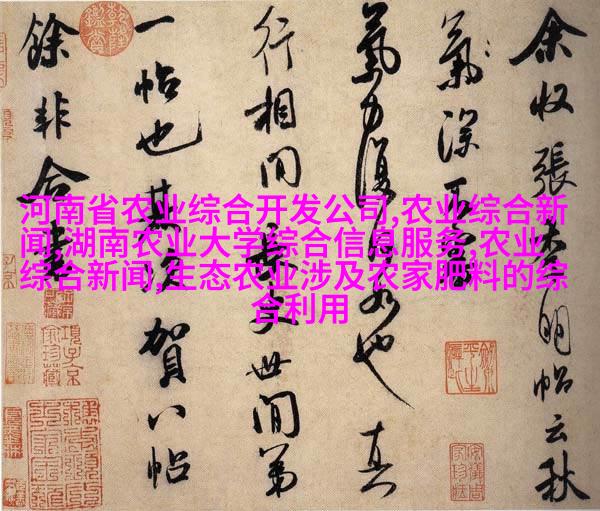 河南省农业综合开发公司,农业综合新
闻,湖南农业大学综合信息服务,农业
综合新闻,生态农业涉及农家肥料的综
合利用
余收張季明帖云秋
氣深不審
氣力復何如也真
行相間長史世間第
一帖也其次賀八帖
餘非合書
項子京
家珍藏